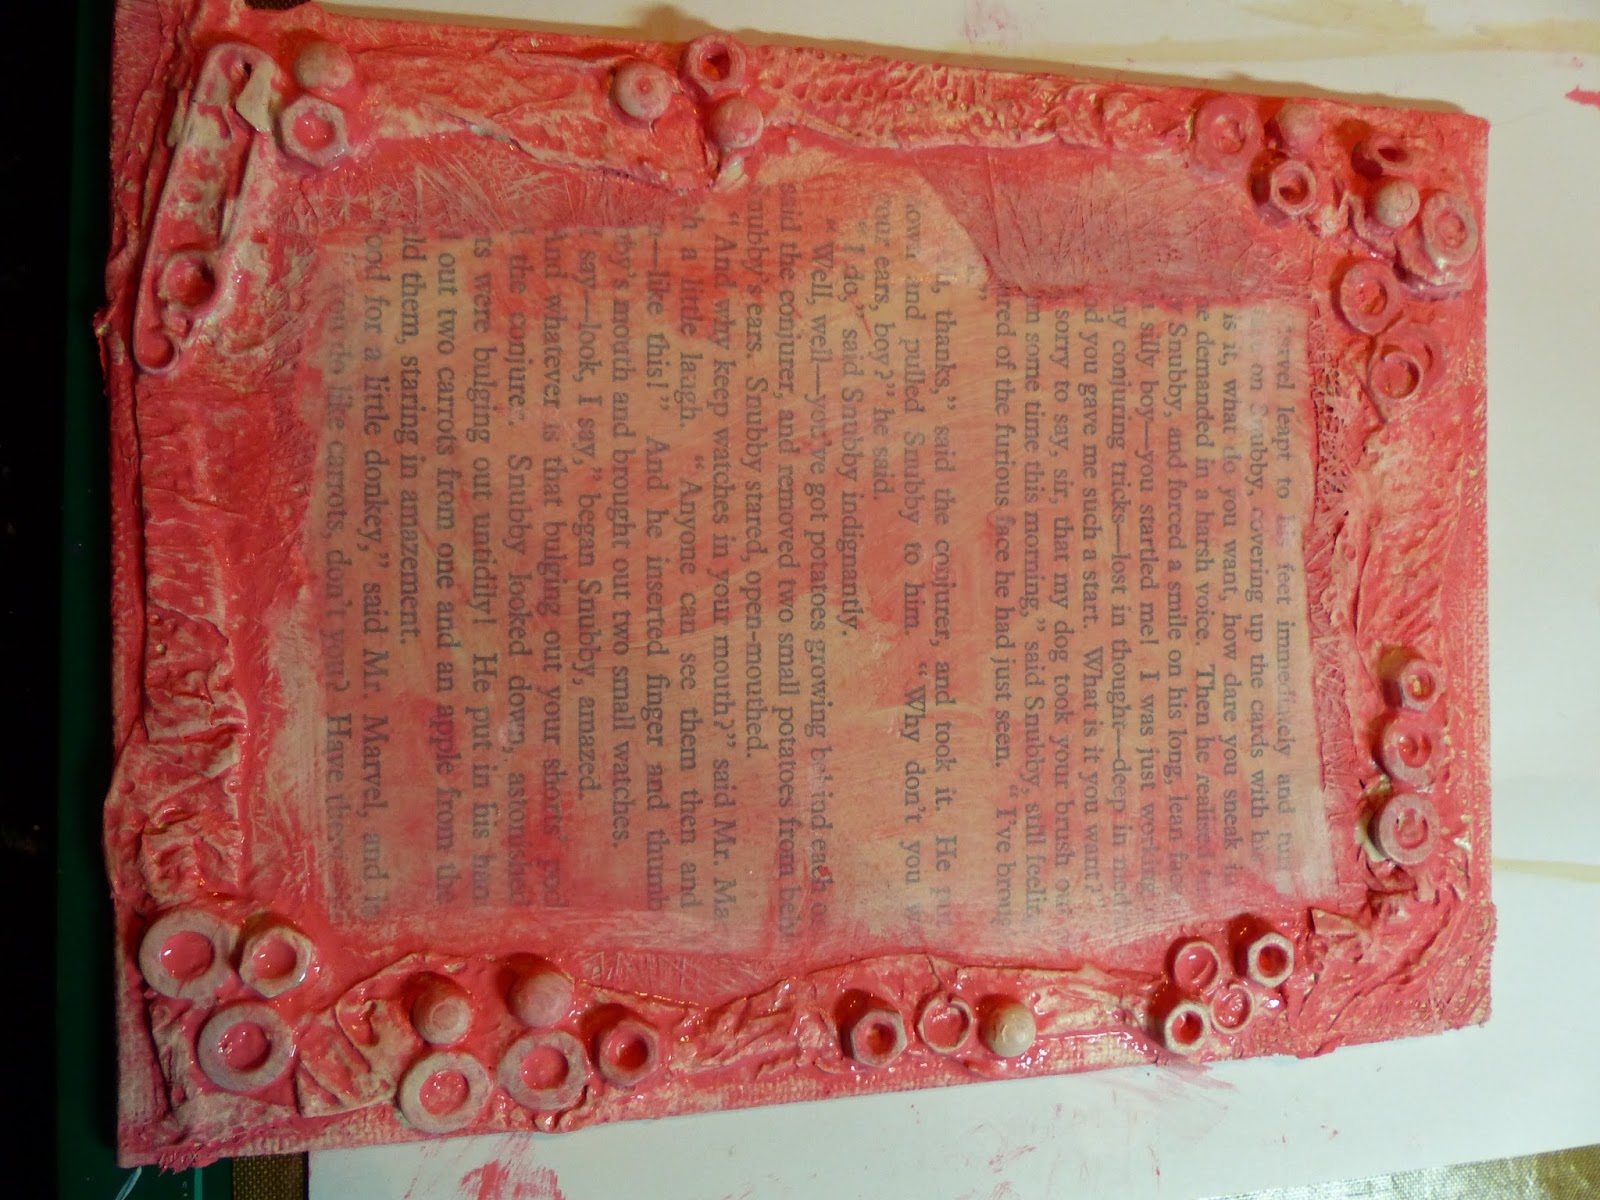 leapt to feet immediately and
on Snubby, covering up the cards with
is it, what do you want, how dare you sneak
demanded in a harsh voice. Then he realised
Snubby, and forced a smile on his long, lean face
silly boy—you startled me! I was just working
conjuring tricks—lost in thought—deep in
you gave me such a start. What is it you want?"
sorry to say, sir, that my dog took your brush
some time this morning," said Snubby, still
of the furious face he had just seen. "I've
"
thanks," said the conjurer, and took it. He
and pulled Snubby to him. "Why don't you
your ears, boy?" he said.
"I do," said Snubby indignantly.
"Well, well—you've got potatoes growing behind each
said the conjurer, and removed two small potatoes from
Snubby's ears. Snubby stared, open-mouthed.
"And why keep watches in your mouth?" said Mr.
a little laugh. "Anyone can see them then and
—like this!" And he inserted finger and thumb
mouth and brought out two small watches.
say—look, I say," began Snubby, amazed.
And whatever is that bulging out your shorts'
the conjurer. Snubby looked down, astonished
were bulging out untidily! He put in his
out two carrots from one and an apple from the
them, staring in amazement.
for a little donkey," said Mr. Marvel, and
do like carrots, don't you? Have